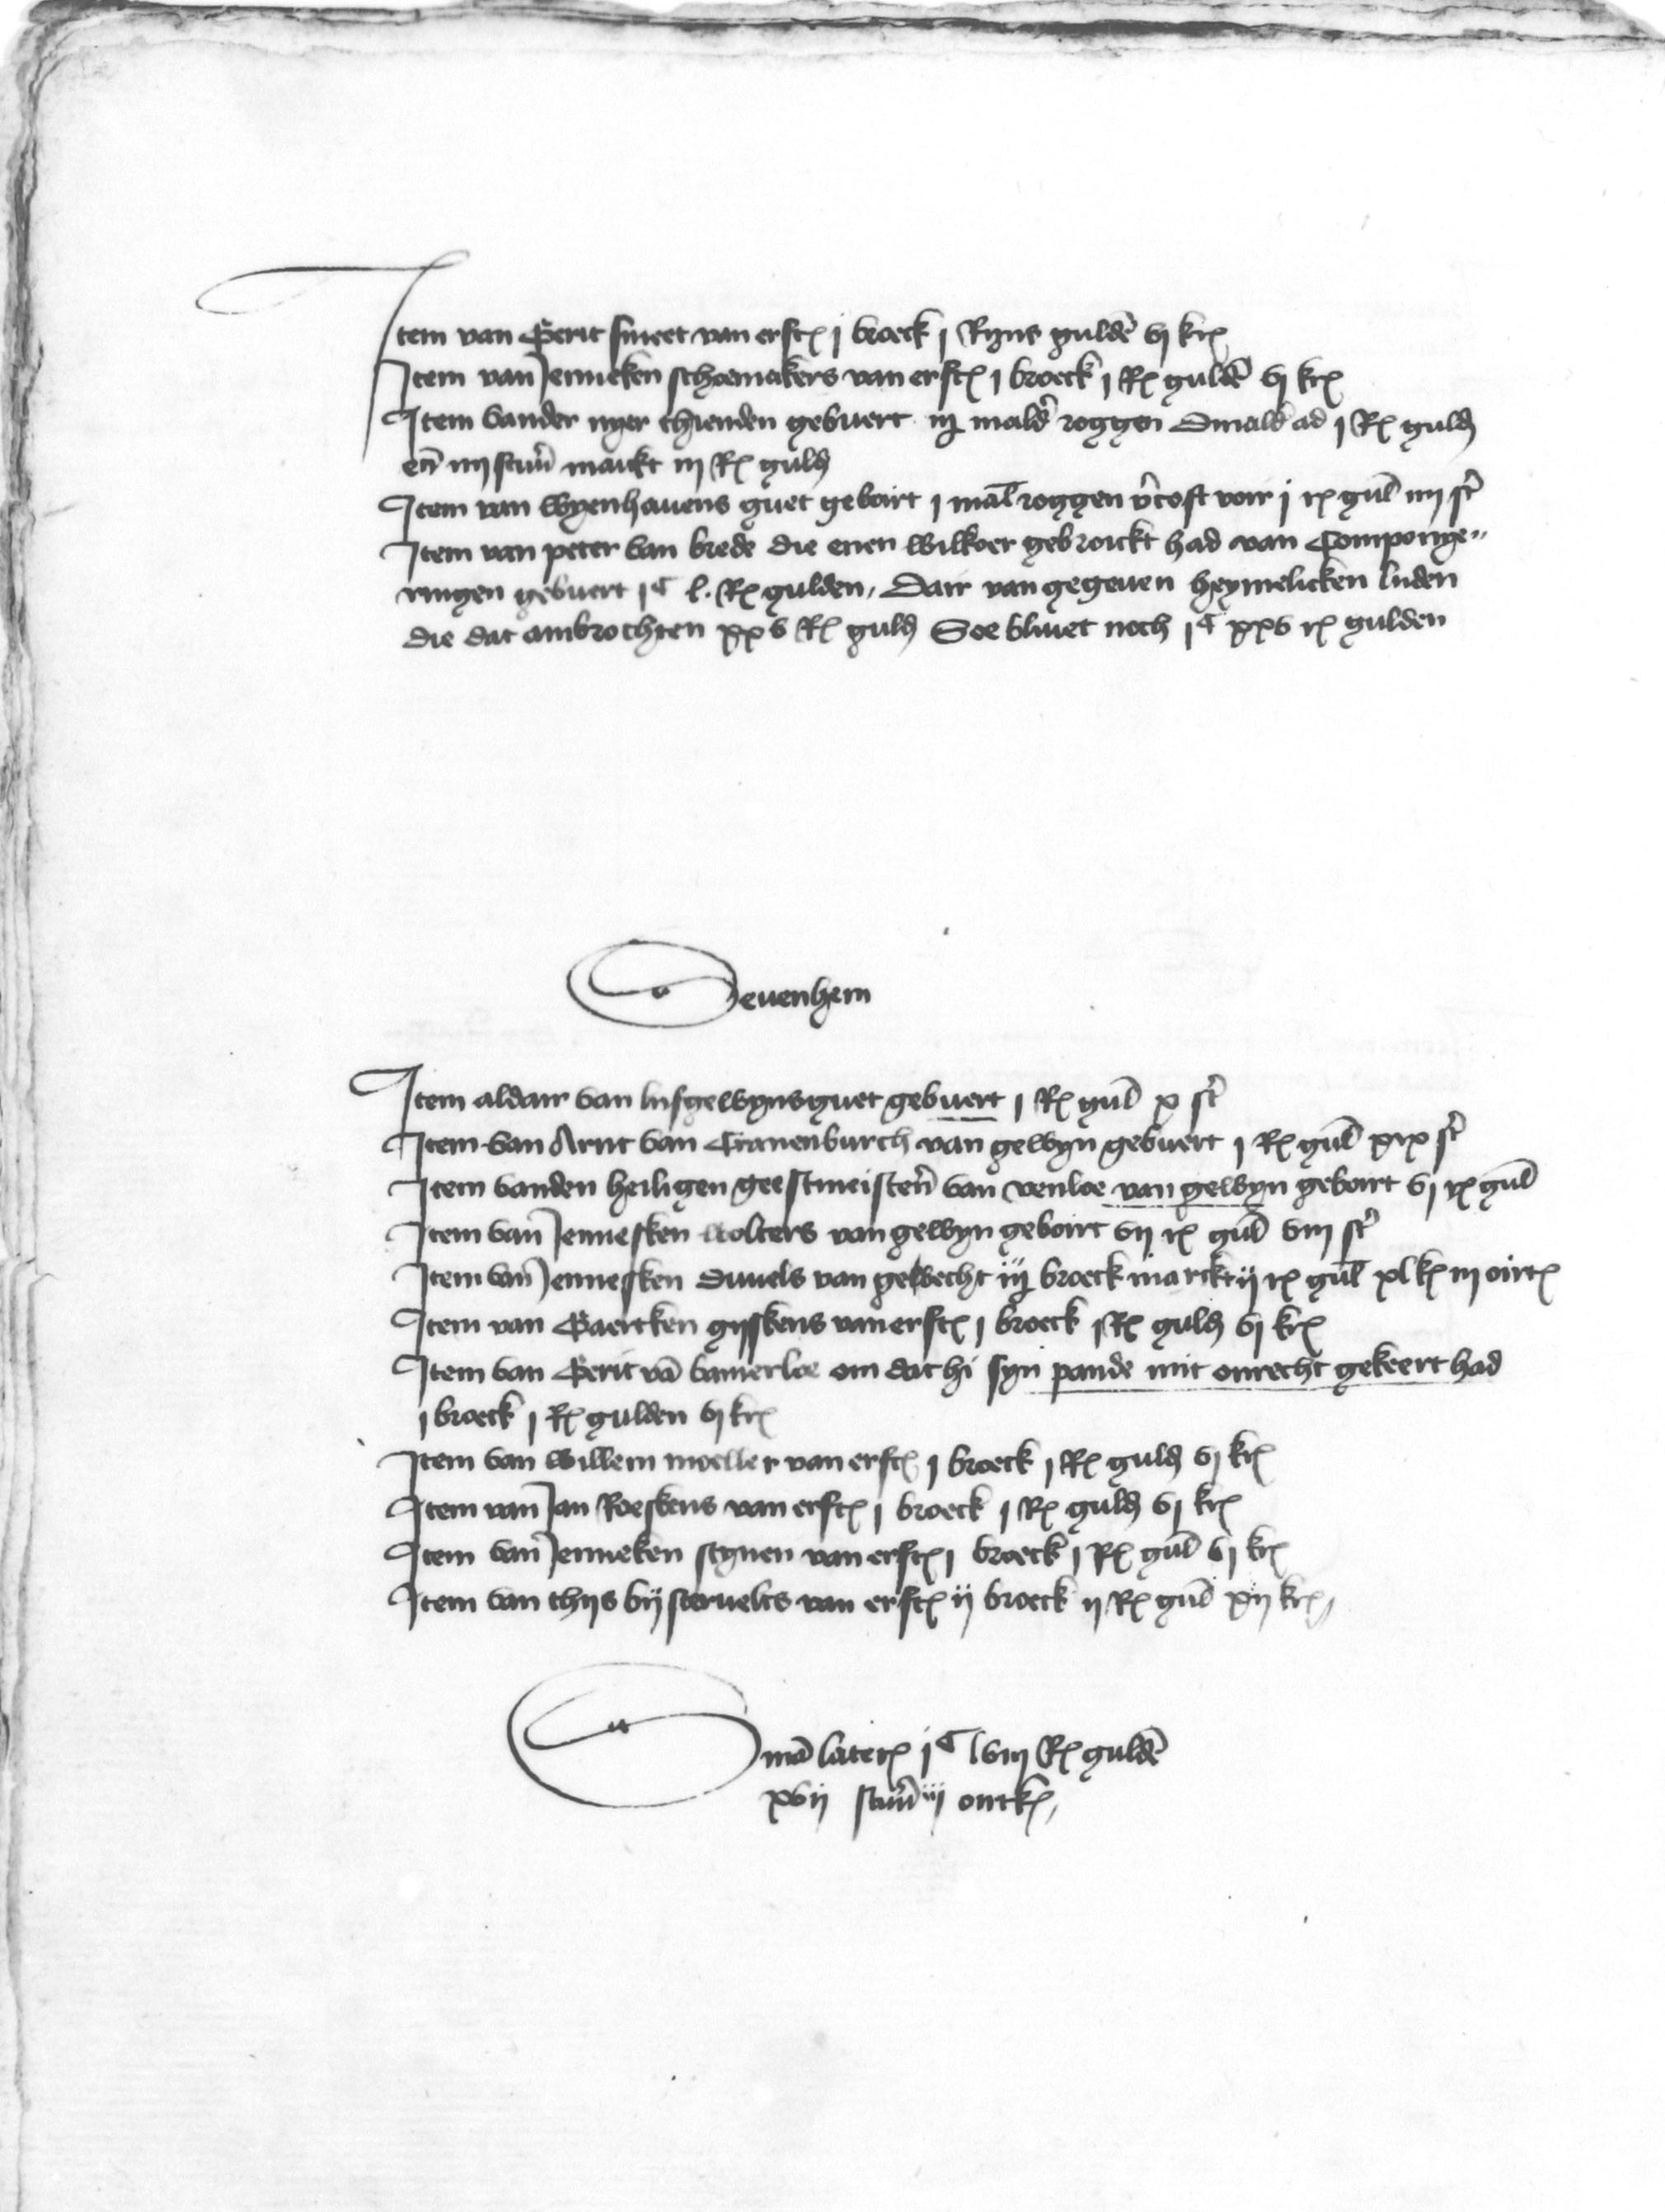 Item van Gerit smeet van erfcz j broeck j Ryns guldē vj krz
Item van Jenneken schoemakers van erfcz j broeck j Rz guldē vj krz
Item vander nyer thienden gebuert iij mald' roggen Dmald' ad j Rz guld
eñ iiij stuu' maickt iij Rz guld
Item van wyenhauens guet geboirt j mal roggen v'coft voir j rz gul iiij st'
Item van peter van brede die enen wilkoer gebroickt had van Componge-
ringen gebuert jC l. Rz gulden, Dair van gegeuen heymelicken luden
die dat ambrochten xxv Rz guld Soe bliuet noch jC xxv rz gulden
Seuenhem
Item aldair van lyfgewynsguet gebuert j Rz gul x st'
Item van Arnt van Cranenburch van gewyn gebuert j Rz gul xix st'
Item vanden heiligen geestmeister' van venloe van gewyn geboirt vj rz gul
Item van Jennesken wolters van gewyn geboirt vij rz gul viij st'
Item van Jennesken Duuels van gewecht iij broeck marckt ij rz gul xl kz iij oirtz
Item van Gaertken gyskens van erfcz j broeck j Rz guld vj krz
Item van Gerit vā vamerloe om dat hi syn pande mit onrecht gekeert had
j broeck j Rz gulden vj krz
Item van willem moeller van erfcz j broeck j Rz guld vj krz
Item van Jan Roeskens van erfcz j broeck j Rz guld vj krz
Item van Jenneken stynen van erfcz j broeck j Rz gul vj krz
Item van thijs bijsteruelts van erfcz ij broeck ij Rz gul xij krz
Smā laterz jC lviij Rz guldē
xvij stuu' iij oirtkz